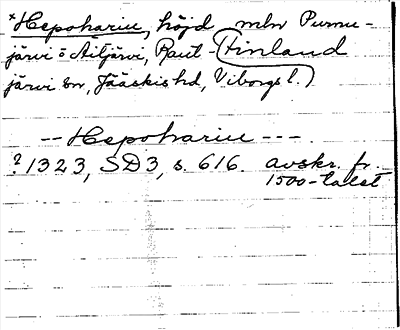 *Hepohariu, höjd mln Purnu-
järvi o Aitjärvi, Raut- (Finland
järvi sn, Jääskis hd, Viborgs l.)
-- Hepohariu ---
? 1323, SD3, s. 616. avskr. fr.
1500-talet